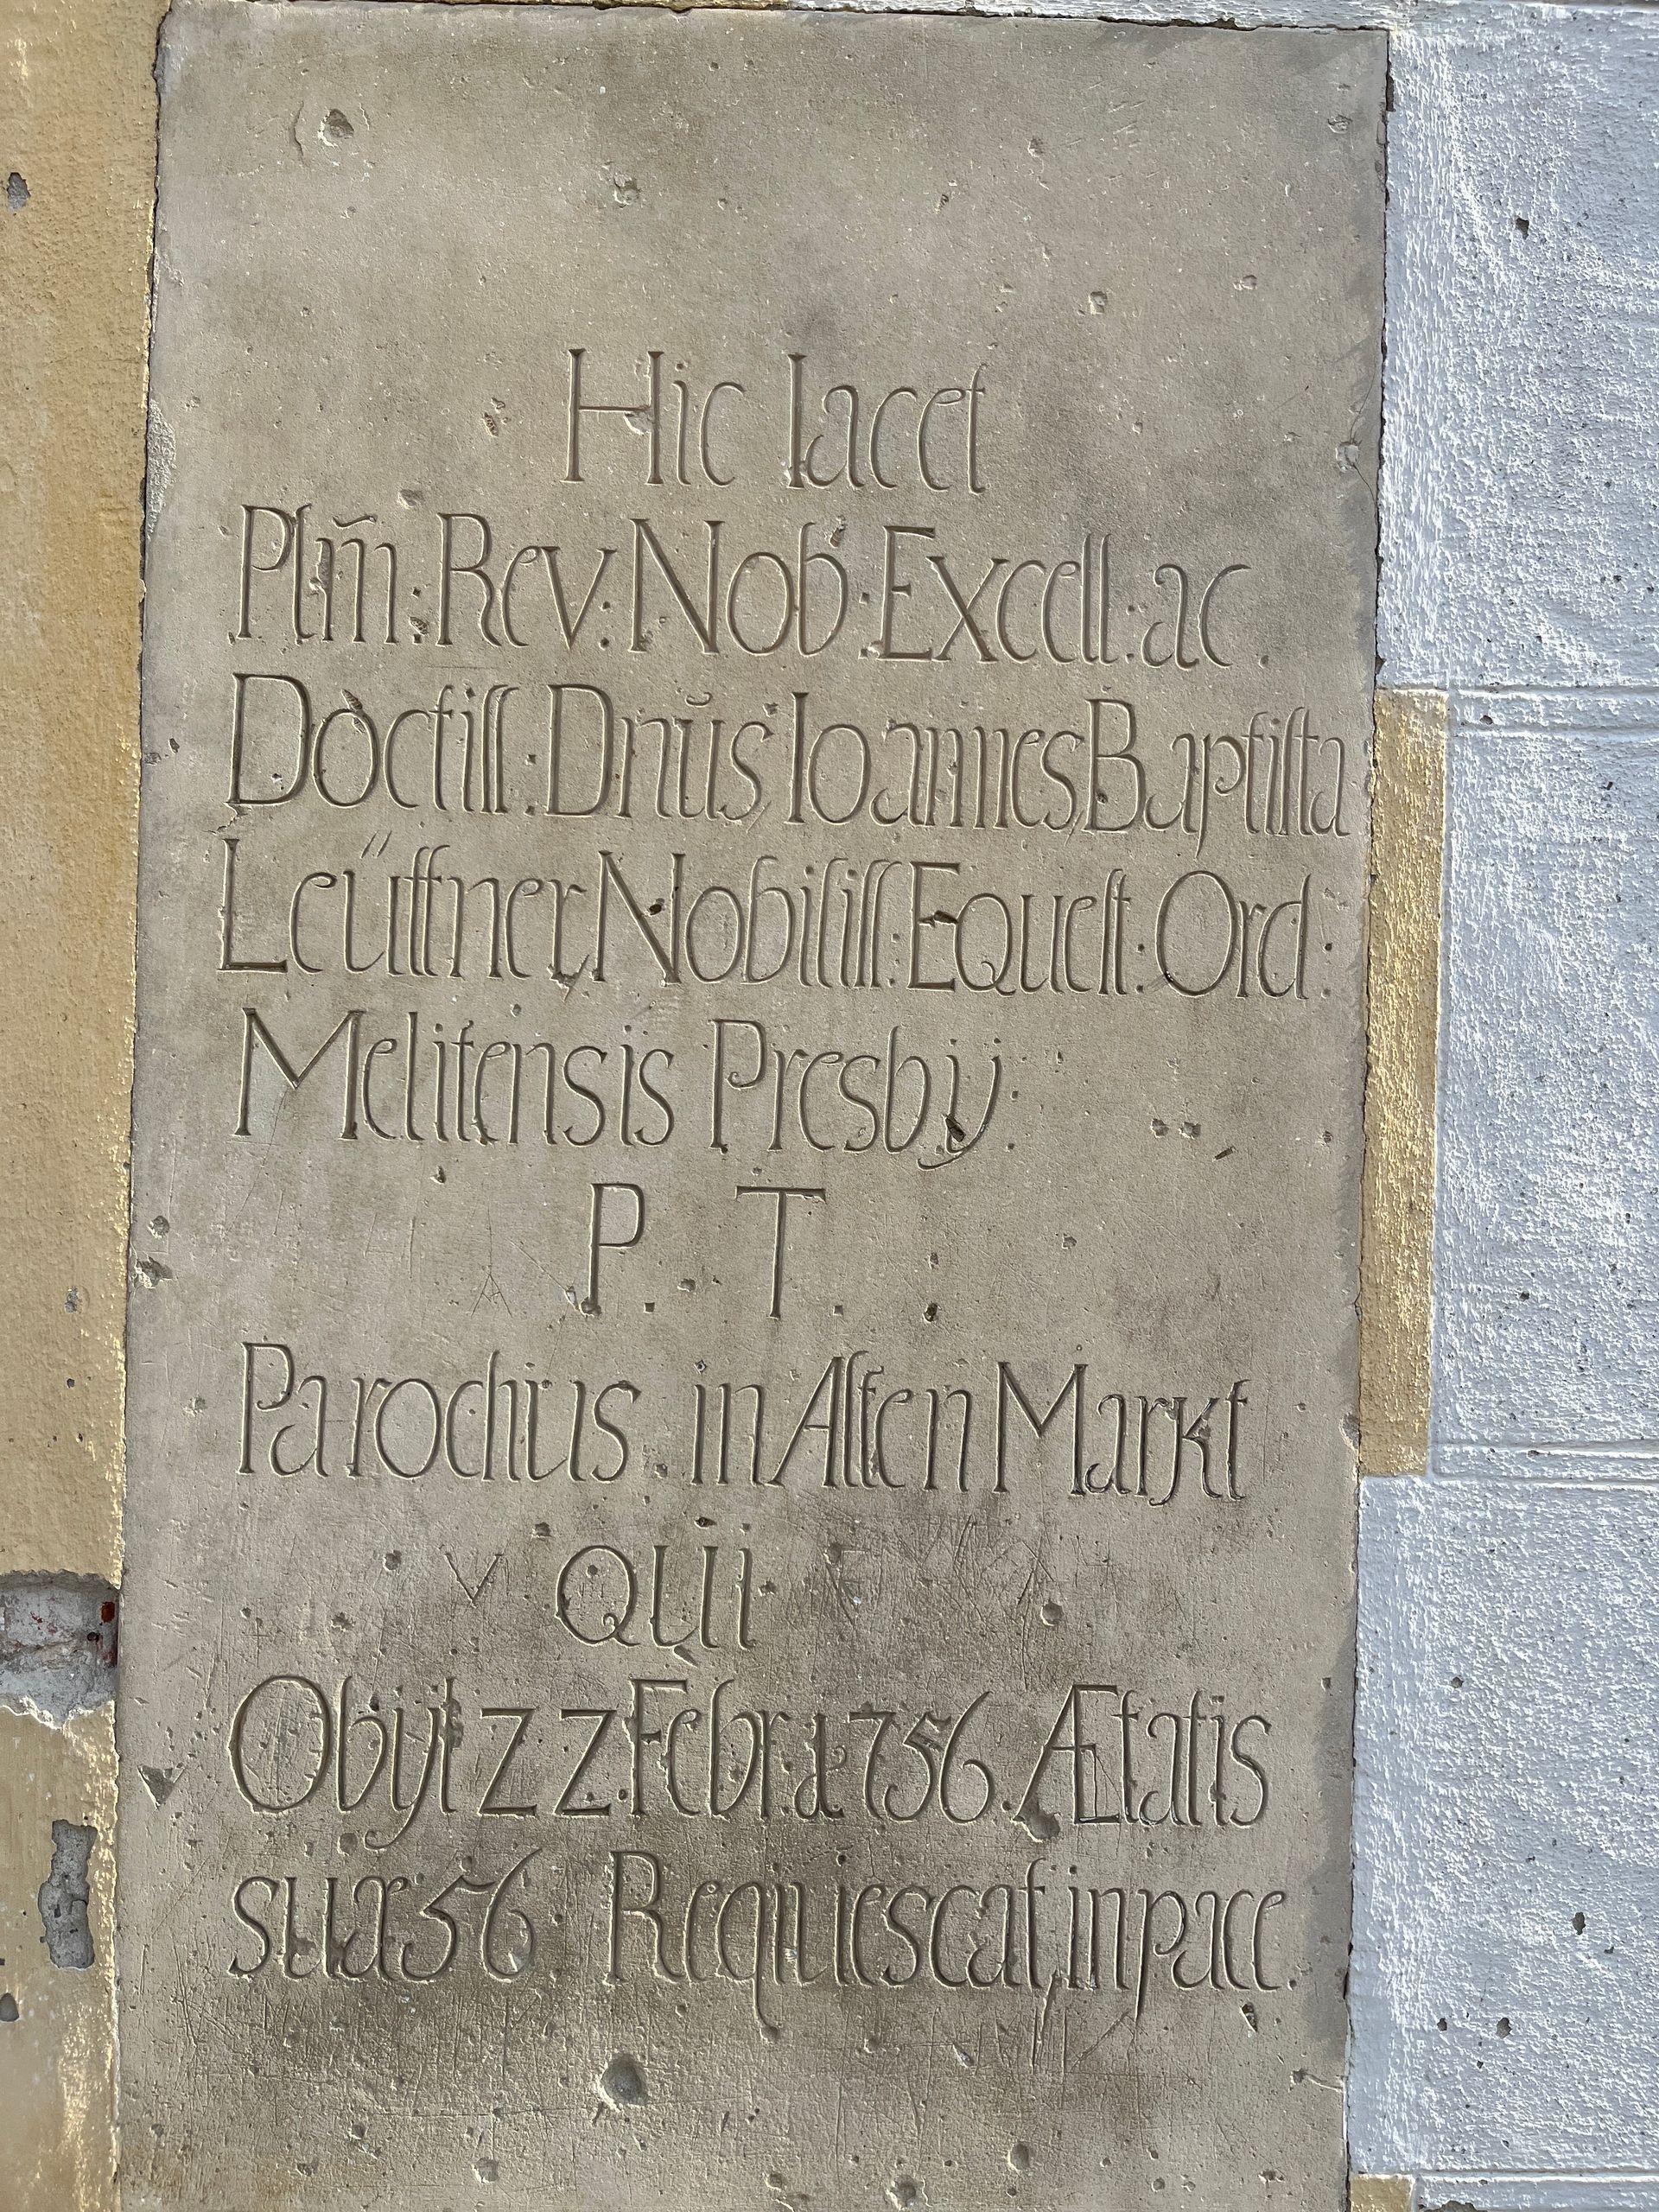 Hic Iacet
Plm̃: Rev: Nob: Excell: ac.
Doctiſſ: Dnūs Ioannes Baptiſta
Leüttner Nobiliſſ: Equeſt: Ord:
Melitensis Presbÿ:
P. T.
Parochus in Alten Markt
QUi
Obÿt ZZ. Febr: a 756. Ætatis
suæ 56 Requiescat in pace.